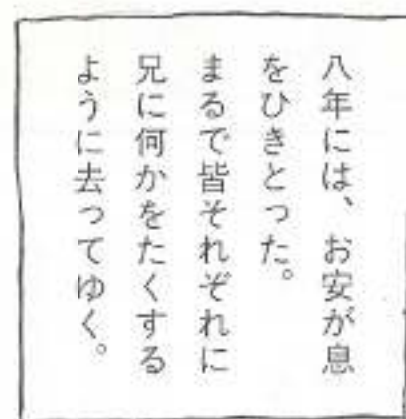 八年には、お安が息
をひきとった。
まるで皆それぞれに
兄に何かをたくする
ように去ってゆく。